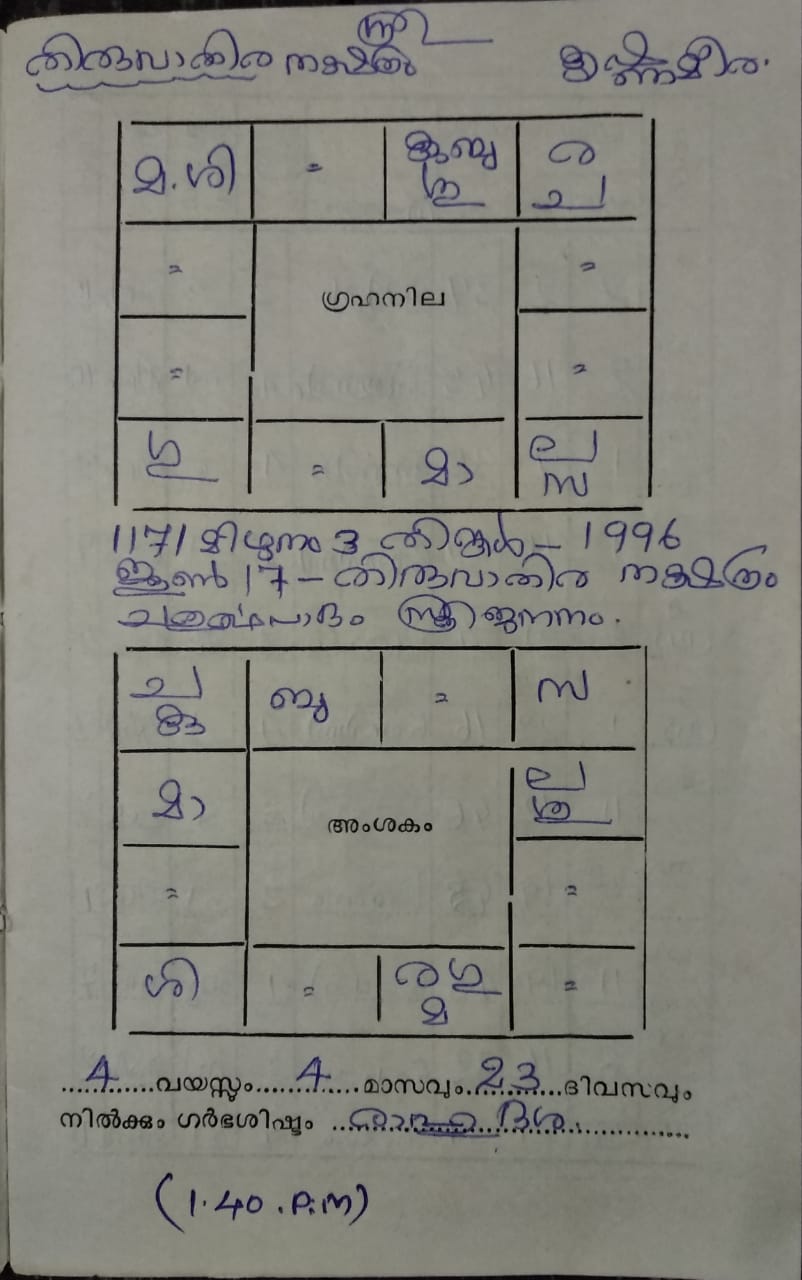 സ്ത്രീ
തിരുവാതിര നക്ഷത്രം കൃഷ്ണമീര.
മ.ശി = കുബു ര
ശു ച
= =
ഗ്രഹനില
= =
ഗു = മാ ല
സ
1171 മിഥുനം 3 തിങ്കൾ – 1996
ജൂൺ 17 – തിരുവാതിര നക്ഷത്രം
ചതുർത്ഥപാദം സ്ത്രീജനനം.
ച ബു = സ
കു
മാ ല
ശു
അംശകം
= =
ശി = ര ഗു =
മ
4 വയസ്സും 4 മാസവും 23 ദിവസവും
നിൽക്കും ഗർഭശിഷ്ടം രാഹു ദശ
(1.40.P.M)